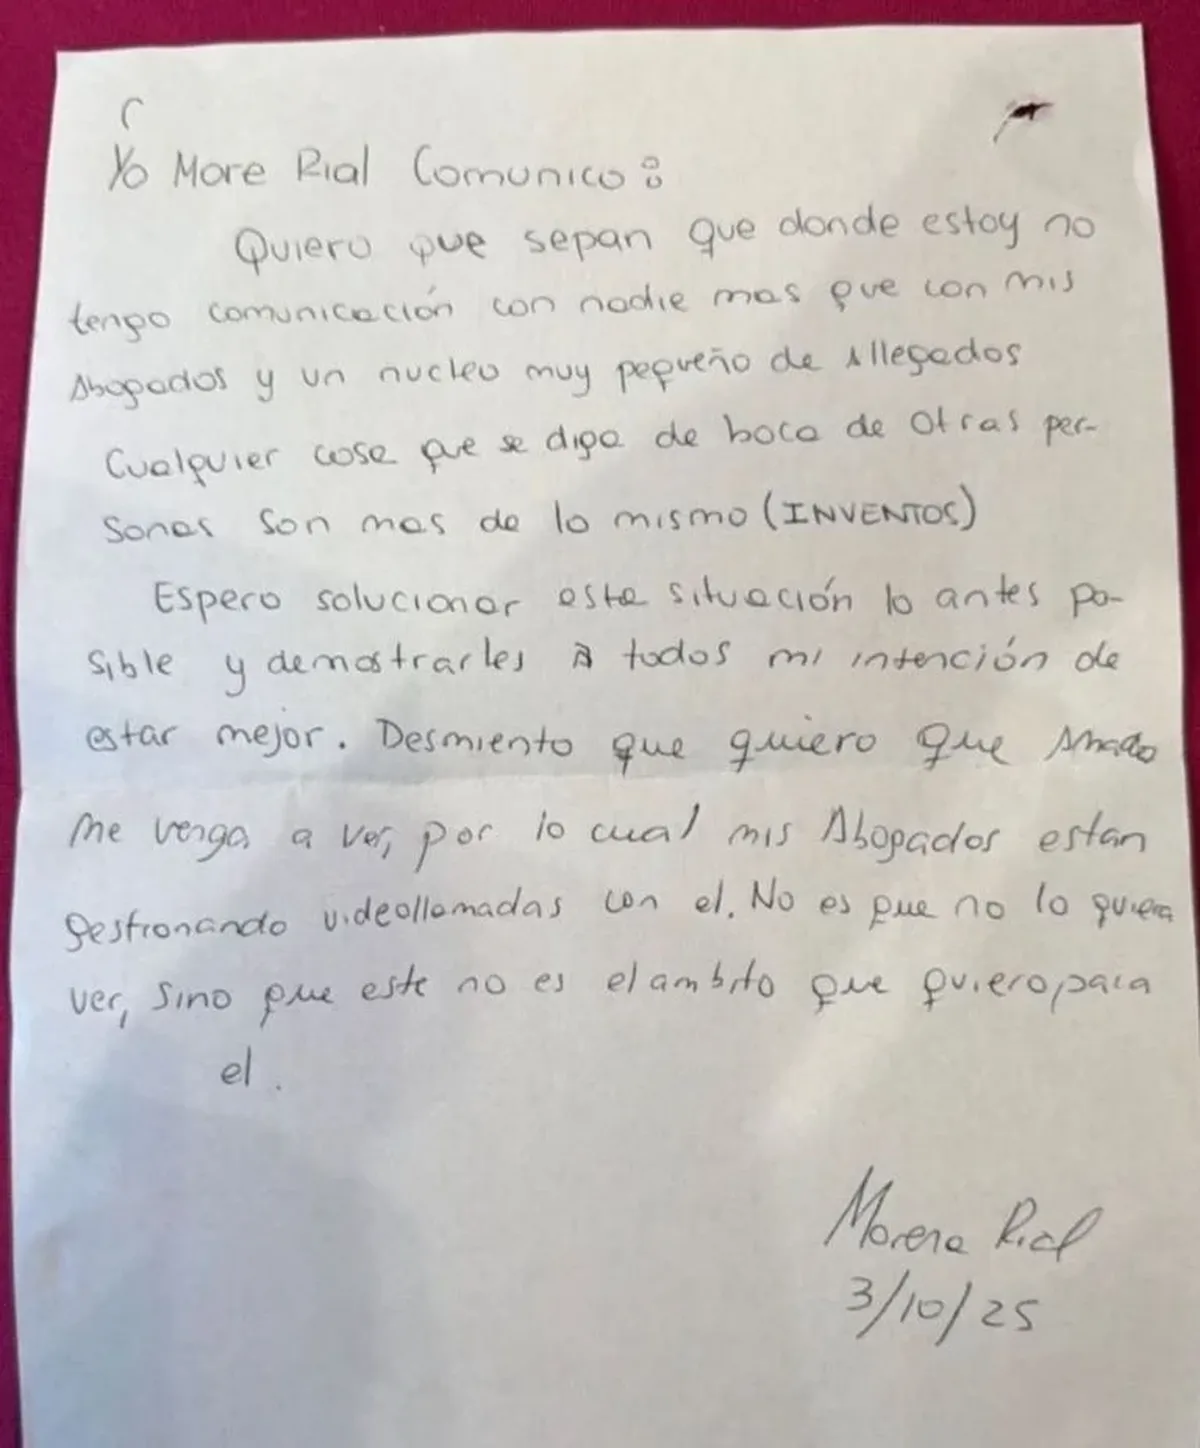 Yo More Rial Comunico:
Quiero que sepan que donde estoy no
tengo comunicación con nadie mas que con mis
Abogados y un nucleo muy pequeño de Allegados
Cualquier cosa que se diga de boca de otras per-
sonas son mas de lo mismo (INVENTOS)
Espero solucionar esta situación lo antes po-
sible y demostrarles A todos mi intención de
estar mejor. Desmiento que quiero que Amado
me venga a ver, por lo cual mis Abogados estan
gestionando videollamadas con el. No es que no lo quiera
ver, sino que este no es el ambito que quiero para
el.
Morena Rial
3/10/25